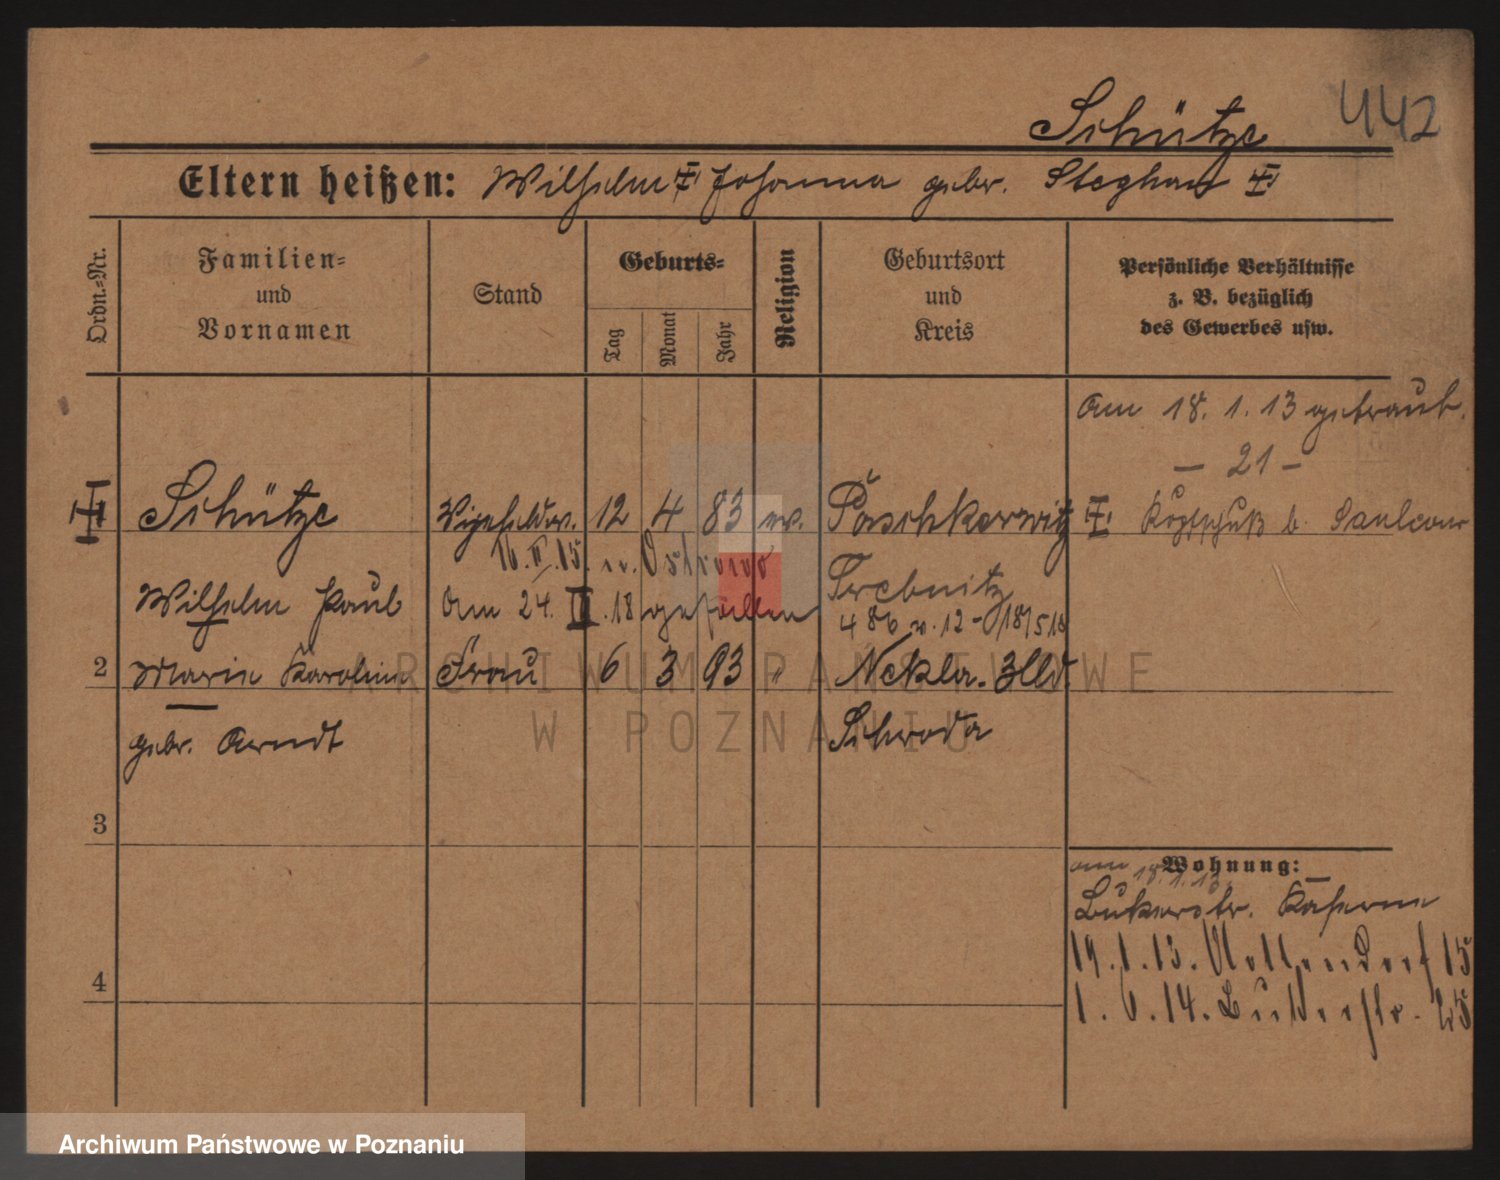 Schütze 442
Eltern heißen: Wilhelm Johanna gebr. Steghan
Ordn.-Nr.
Familien-
und
Vornamen
Stand
Geburts-
Tag
Monat
Jahr
Religion
Geburtsort
und
Kreis
Persönliche Verhältnisse
z. B. bezüglich
des Gewerbes usw.
Am 18. 1. 13 getraut.
- 21 -
Schütze Vizefeldw. 12 4 83 ev. Paschkerwitz Kopfschuß b. Saulcour
16. II. 15. n. Ostrowo Trebnitz
Wilhelm Paul Am 24. III. 18 gefallen
486 v. 12-/18/5 18
2 Marie Karoline Frau 6 3 93 " Nekla. Hld.
gebr. Arndt Schroda
3
Wohnung:
am 18. 1. 13.
Bukerstr. Kaserne
19. 1. 13. 15
4
1. 6. 14. Bukerstr. 25
ARCHIWUM PAŃSTWOWE
W POZNANIU
Archiwum Państwowe w Poznaniu